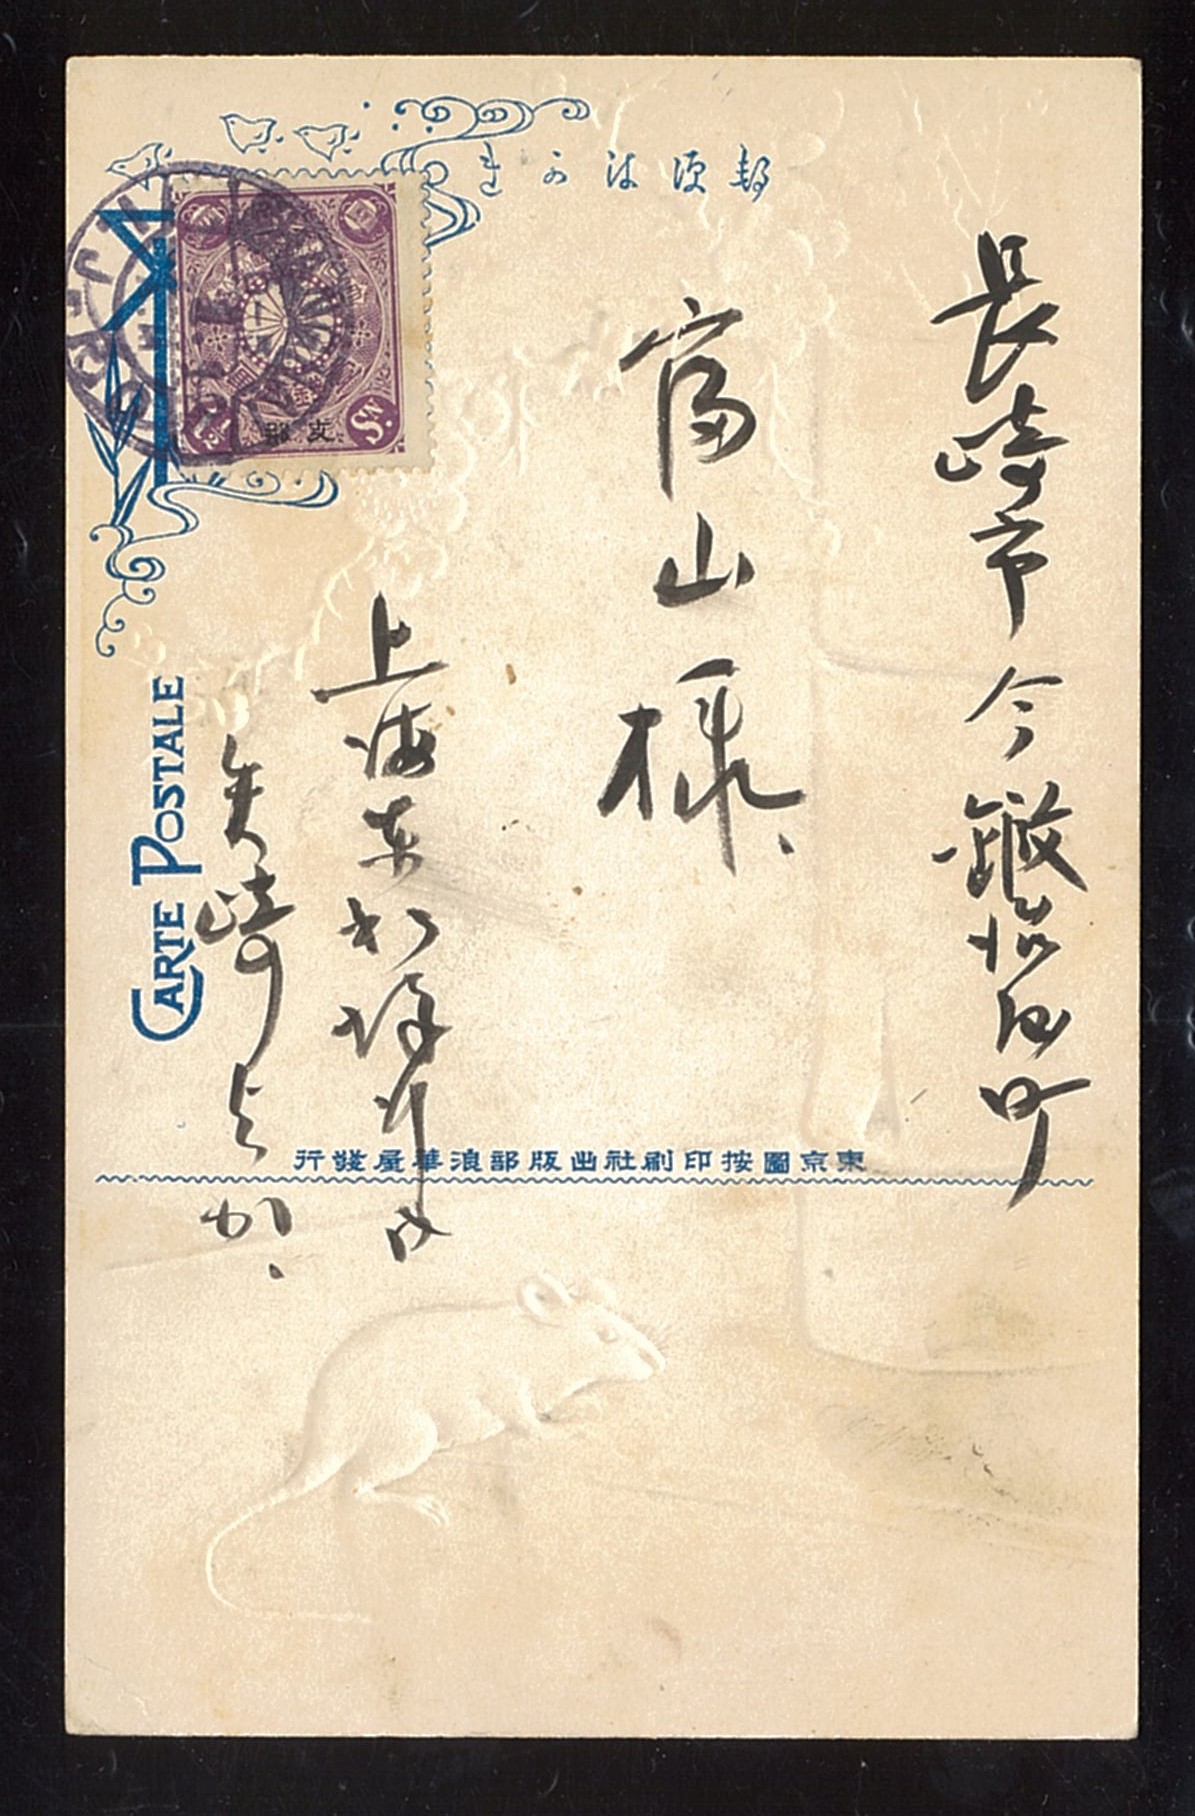 郵便はかき
長崎市今鍛冶屋町
富山様
上海東和洋行内
矢崎
CARTE POSTALE
支那
1½ Sn.
東京圖按印刷社出版部浪華屋發行